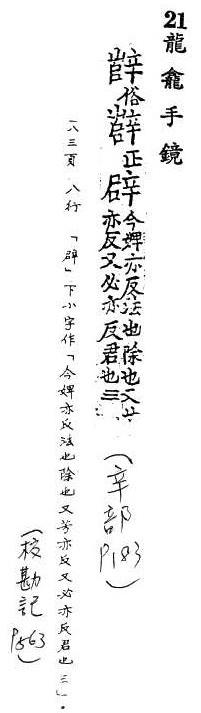 21 龍龕手鏡
俗 正 辟今婢亦反法也除也又
亦反又必亦反君也三
(辛部 P183)
一八三頁 八行 「辟」下小字作「今婢亦反法也除也又芳亦反又必亦反君也三」.
(校勘記 P563)